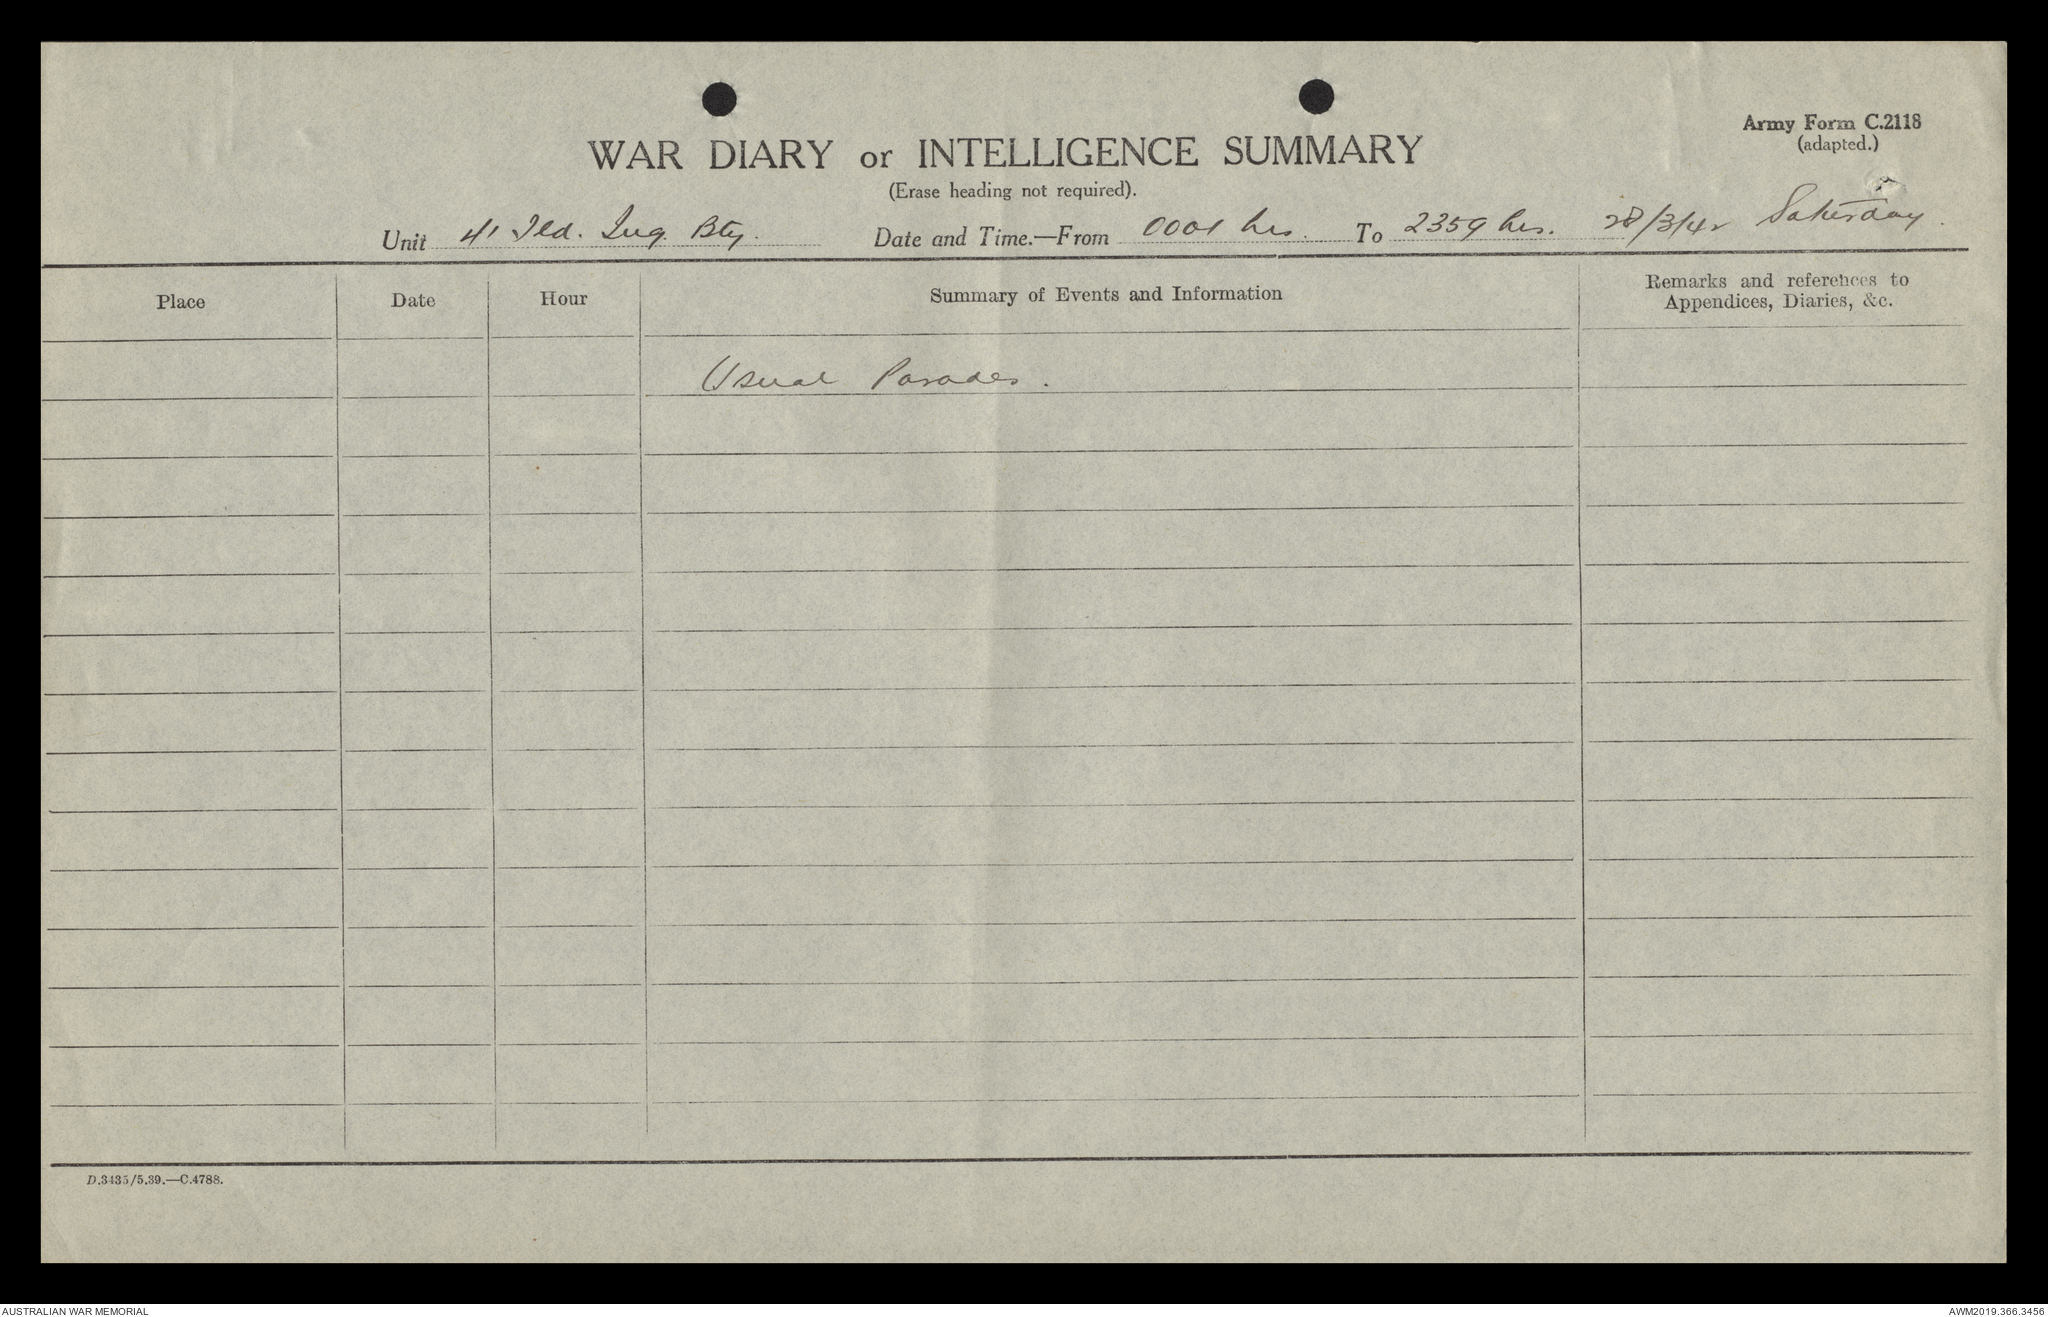 Army Form C.2118
(adapted.)
WAR DIARY or INTELLIGENCE SUMMARY
(Erase heading not required).
Unit 41 Fld. Trg. Bty. Date and Time.—From 0001 hrs. To 2359 hrs. 28/3/42 Saturday.
Place Date Hour Summary of Events and Information Remarks and references to
Appendices, Diaries, &c.
Usual Parades.
D.3435/5.39.—C.4788.
AUSTRALIAN WAR MEMORIAL AWM2019.366.3456